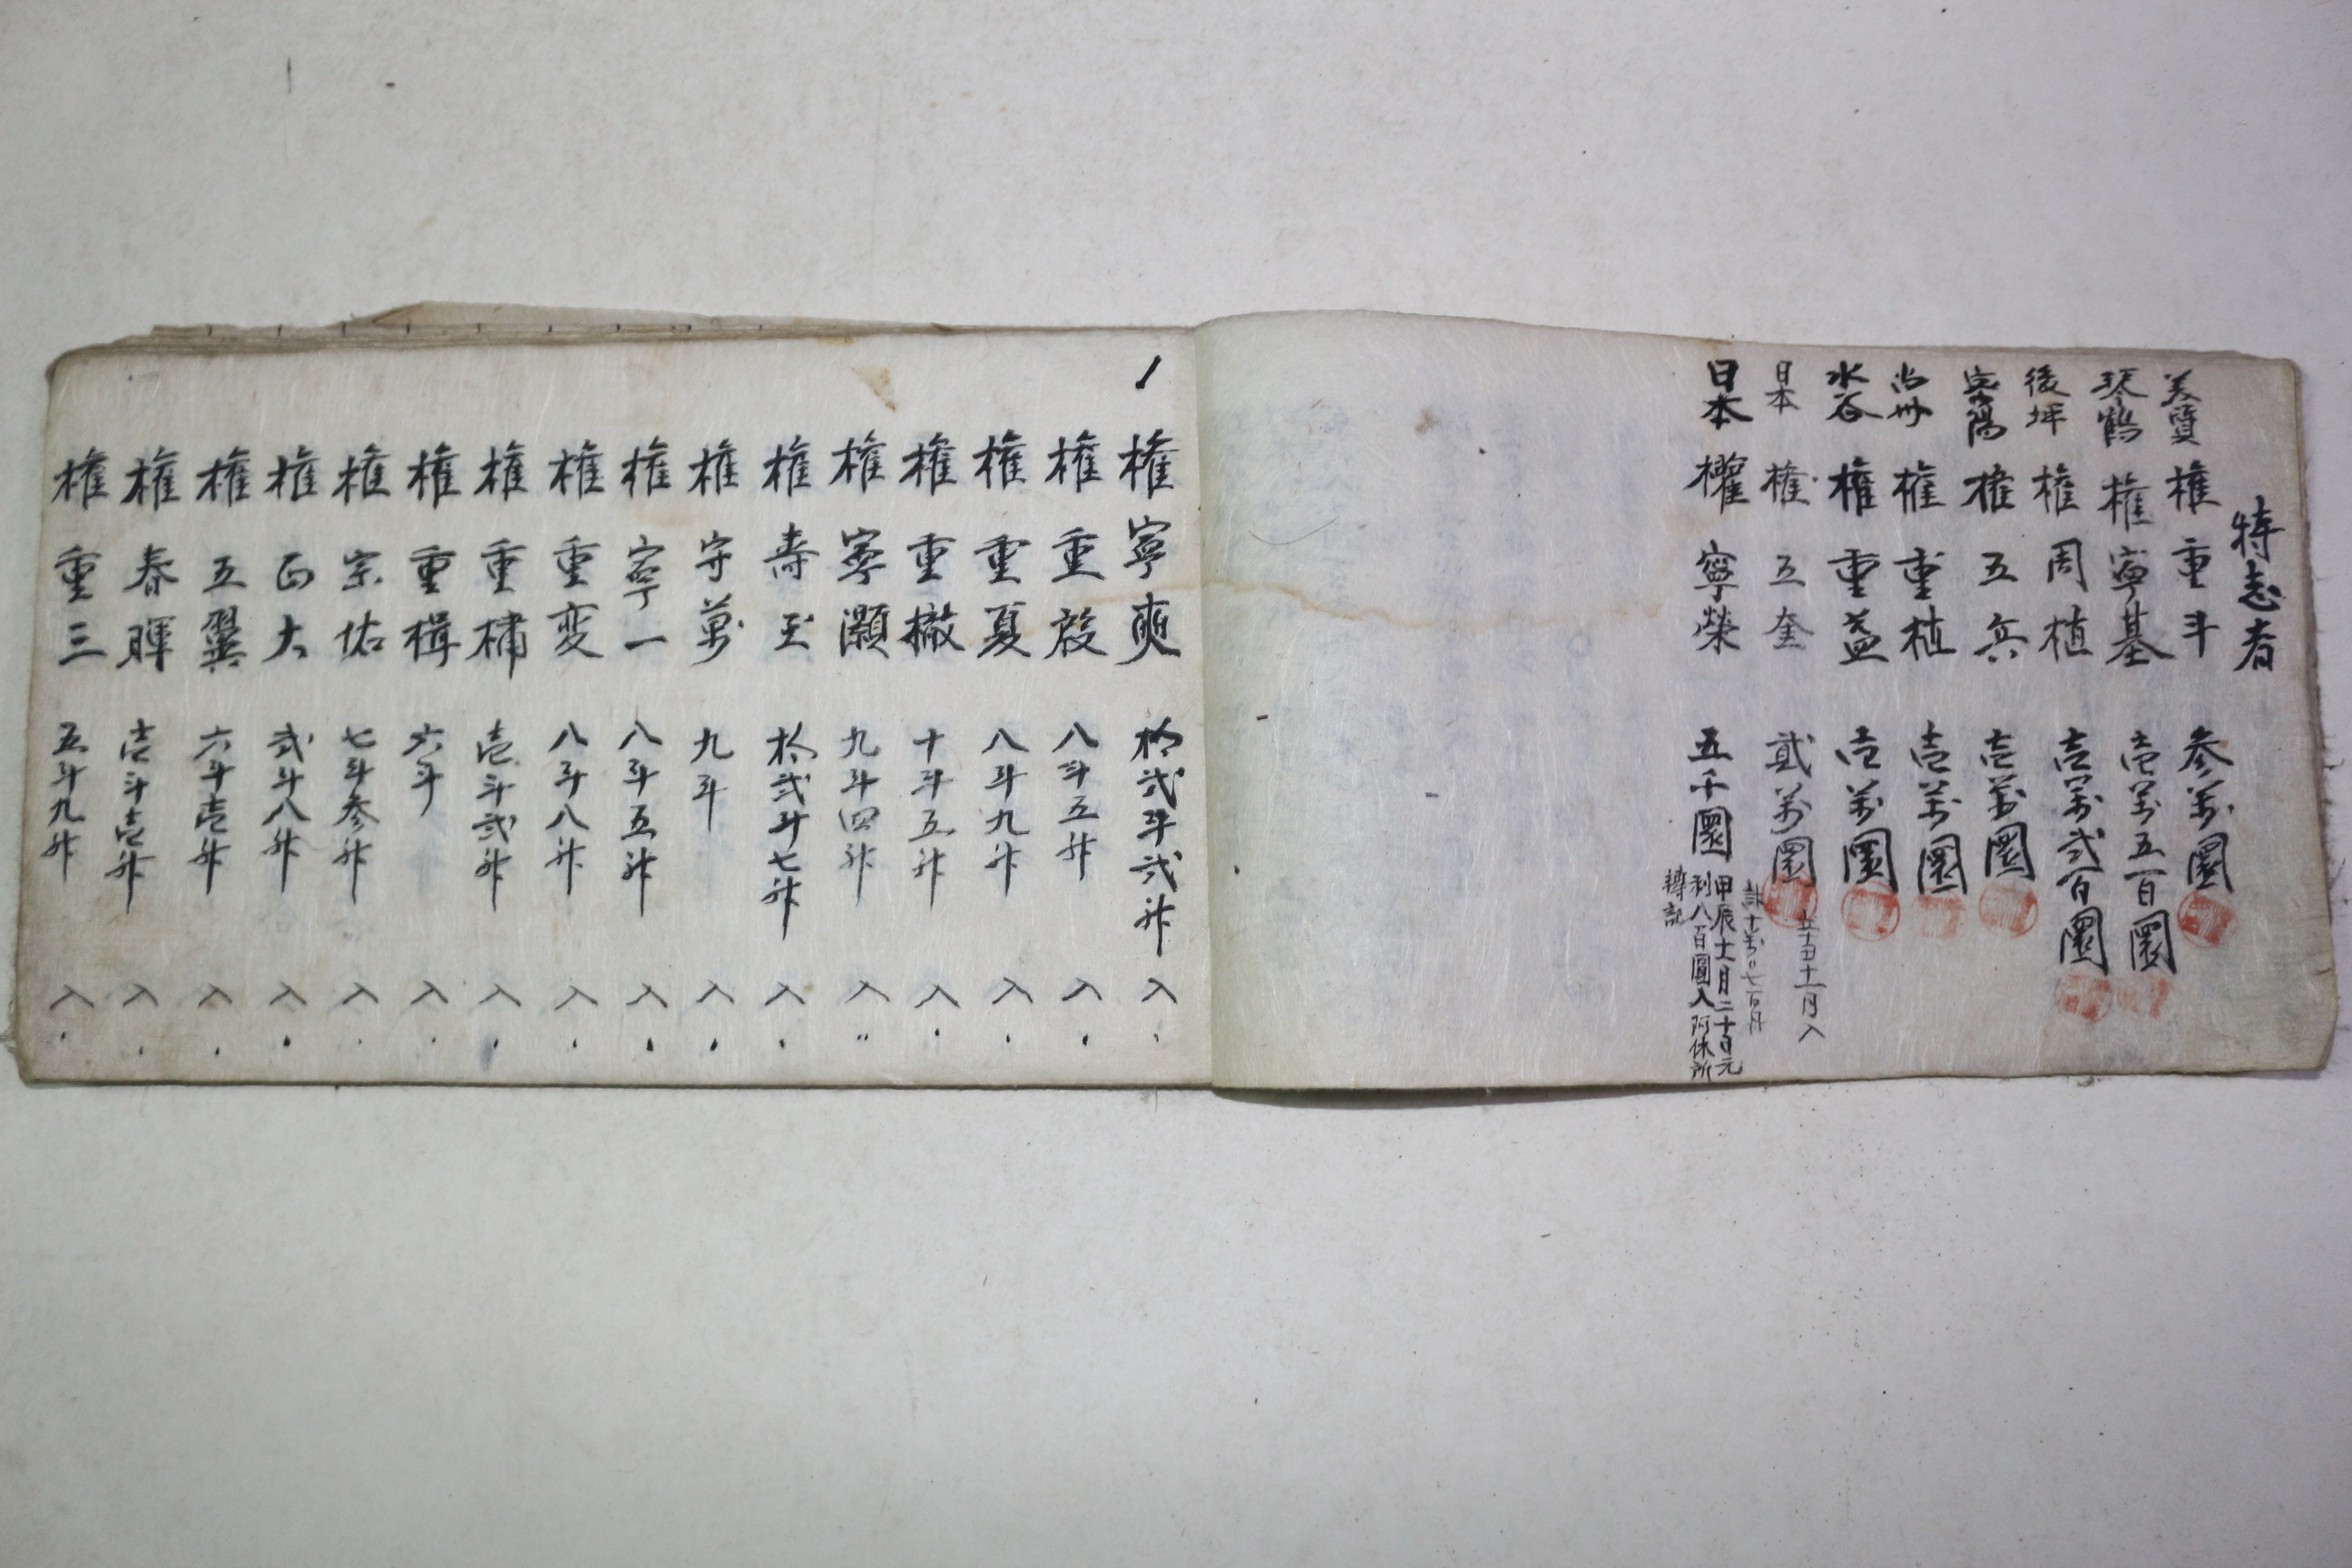 特志者
美質 權重斗 参萬圜
琴鶴 權寧基 壱萬五百圜
後坪 權周植 壱萬弐百圜
權五兵 壱萬圜
尚州 權重植 壱萬圜
水谷 權重益 壱萬圜
日本 權五奎 貳萬圜
十一月入
計十萬 七百
日本 權寧榮 五千圜
甲辰十一月二十日元
利八百圓入阿休所
轉記
1
權寧奭 拾弐斗弐升 入
權重殷 八斗五升 入
權重夏 八斗九升 入
權重撤 十斗五升 入
權寧灝 九斗四升 入
權壽玉 拾弐斗七升 入
權守萬 九斗 入
權寧一 八斗五升 入
權重変 八斗八升 入
權重橚 壱斗弐升 入
權重楫 六斗 入
權宗佑 七斗参升 入
權正大 弐斗八升 入
權五翼 六斗壱升 入
權春暉 壱斗壱升 入
權重三 五斗九升 入